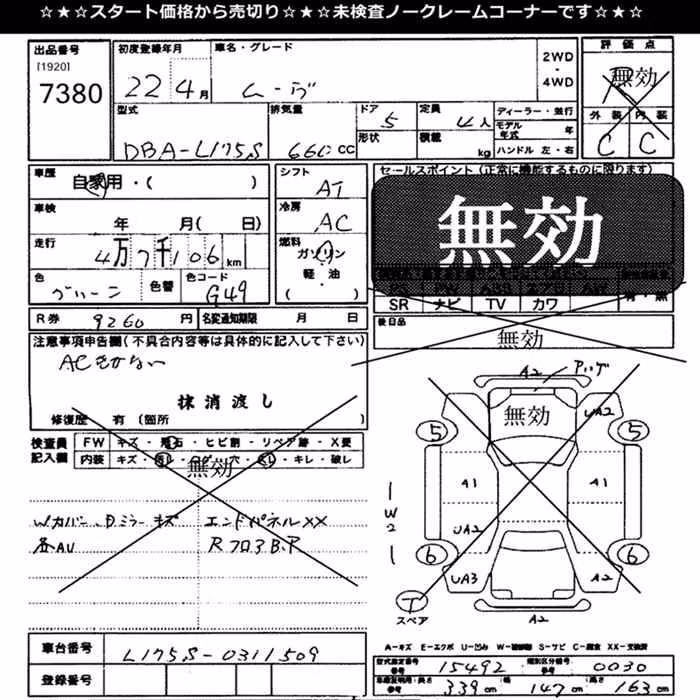 ☆★☆★スタート価格から売切り☆★☆★未検査ノークレームコーナーです☆★☆
出品番号 初度登録年月 車名・グレード 2WD・4WD 評価点
[1920]
7380 22年4月 ムーヴ 無効
型式 排気量 ドア 5 定員 4人 ディーラー・並行 外装 内装
形状 積載 kg モデル年式 年 C C
DBA-L175S 660cc ハンドル 左・右
車歴 自家用・( ) シフト AT セールスポイント(正常に機能するものに限ります)
車検 年 月( 日) 冷房 AC 無効
走行 4万7千106km 燃料 ガソリン
軽・油
( )
色 グリーン 色替 色コード G49
SR ナビ TV カワ 有・無
R券 9260円 名変通知期限 月 日 後日品
無効
注意事項申告欄(不具合内容等は具体的に記入して下さい)
ACきかない
抹消渡し
修復歴 有(箇所
検査員記入欄 FW キズ・飛石・ヒビ割・リペア跡・X要
内装 キズ・汚れ・コゲ・穴・スレ・キレ・破レ
無効
Wカバー、Dミラーキズ エンドパネルXX
各AU RフロアB.P
A2 アゲ
無効 UA2
5 5
A1 A1
W2
UA2 A2
6 6
UA3 A2
T
スペア A2
A=キズ E=エクボ U=凹み W=補修跡 S=サビ C=腐食 XX=交換済
車台番号 L175S-0311509
登録番号
型式指定番号 参考 15492 類別区分番号 参考 0030
車検証明用・長さ 参考 339cm 幅 147cm 高さ 163cm